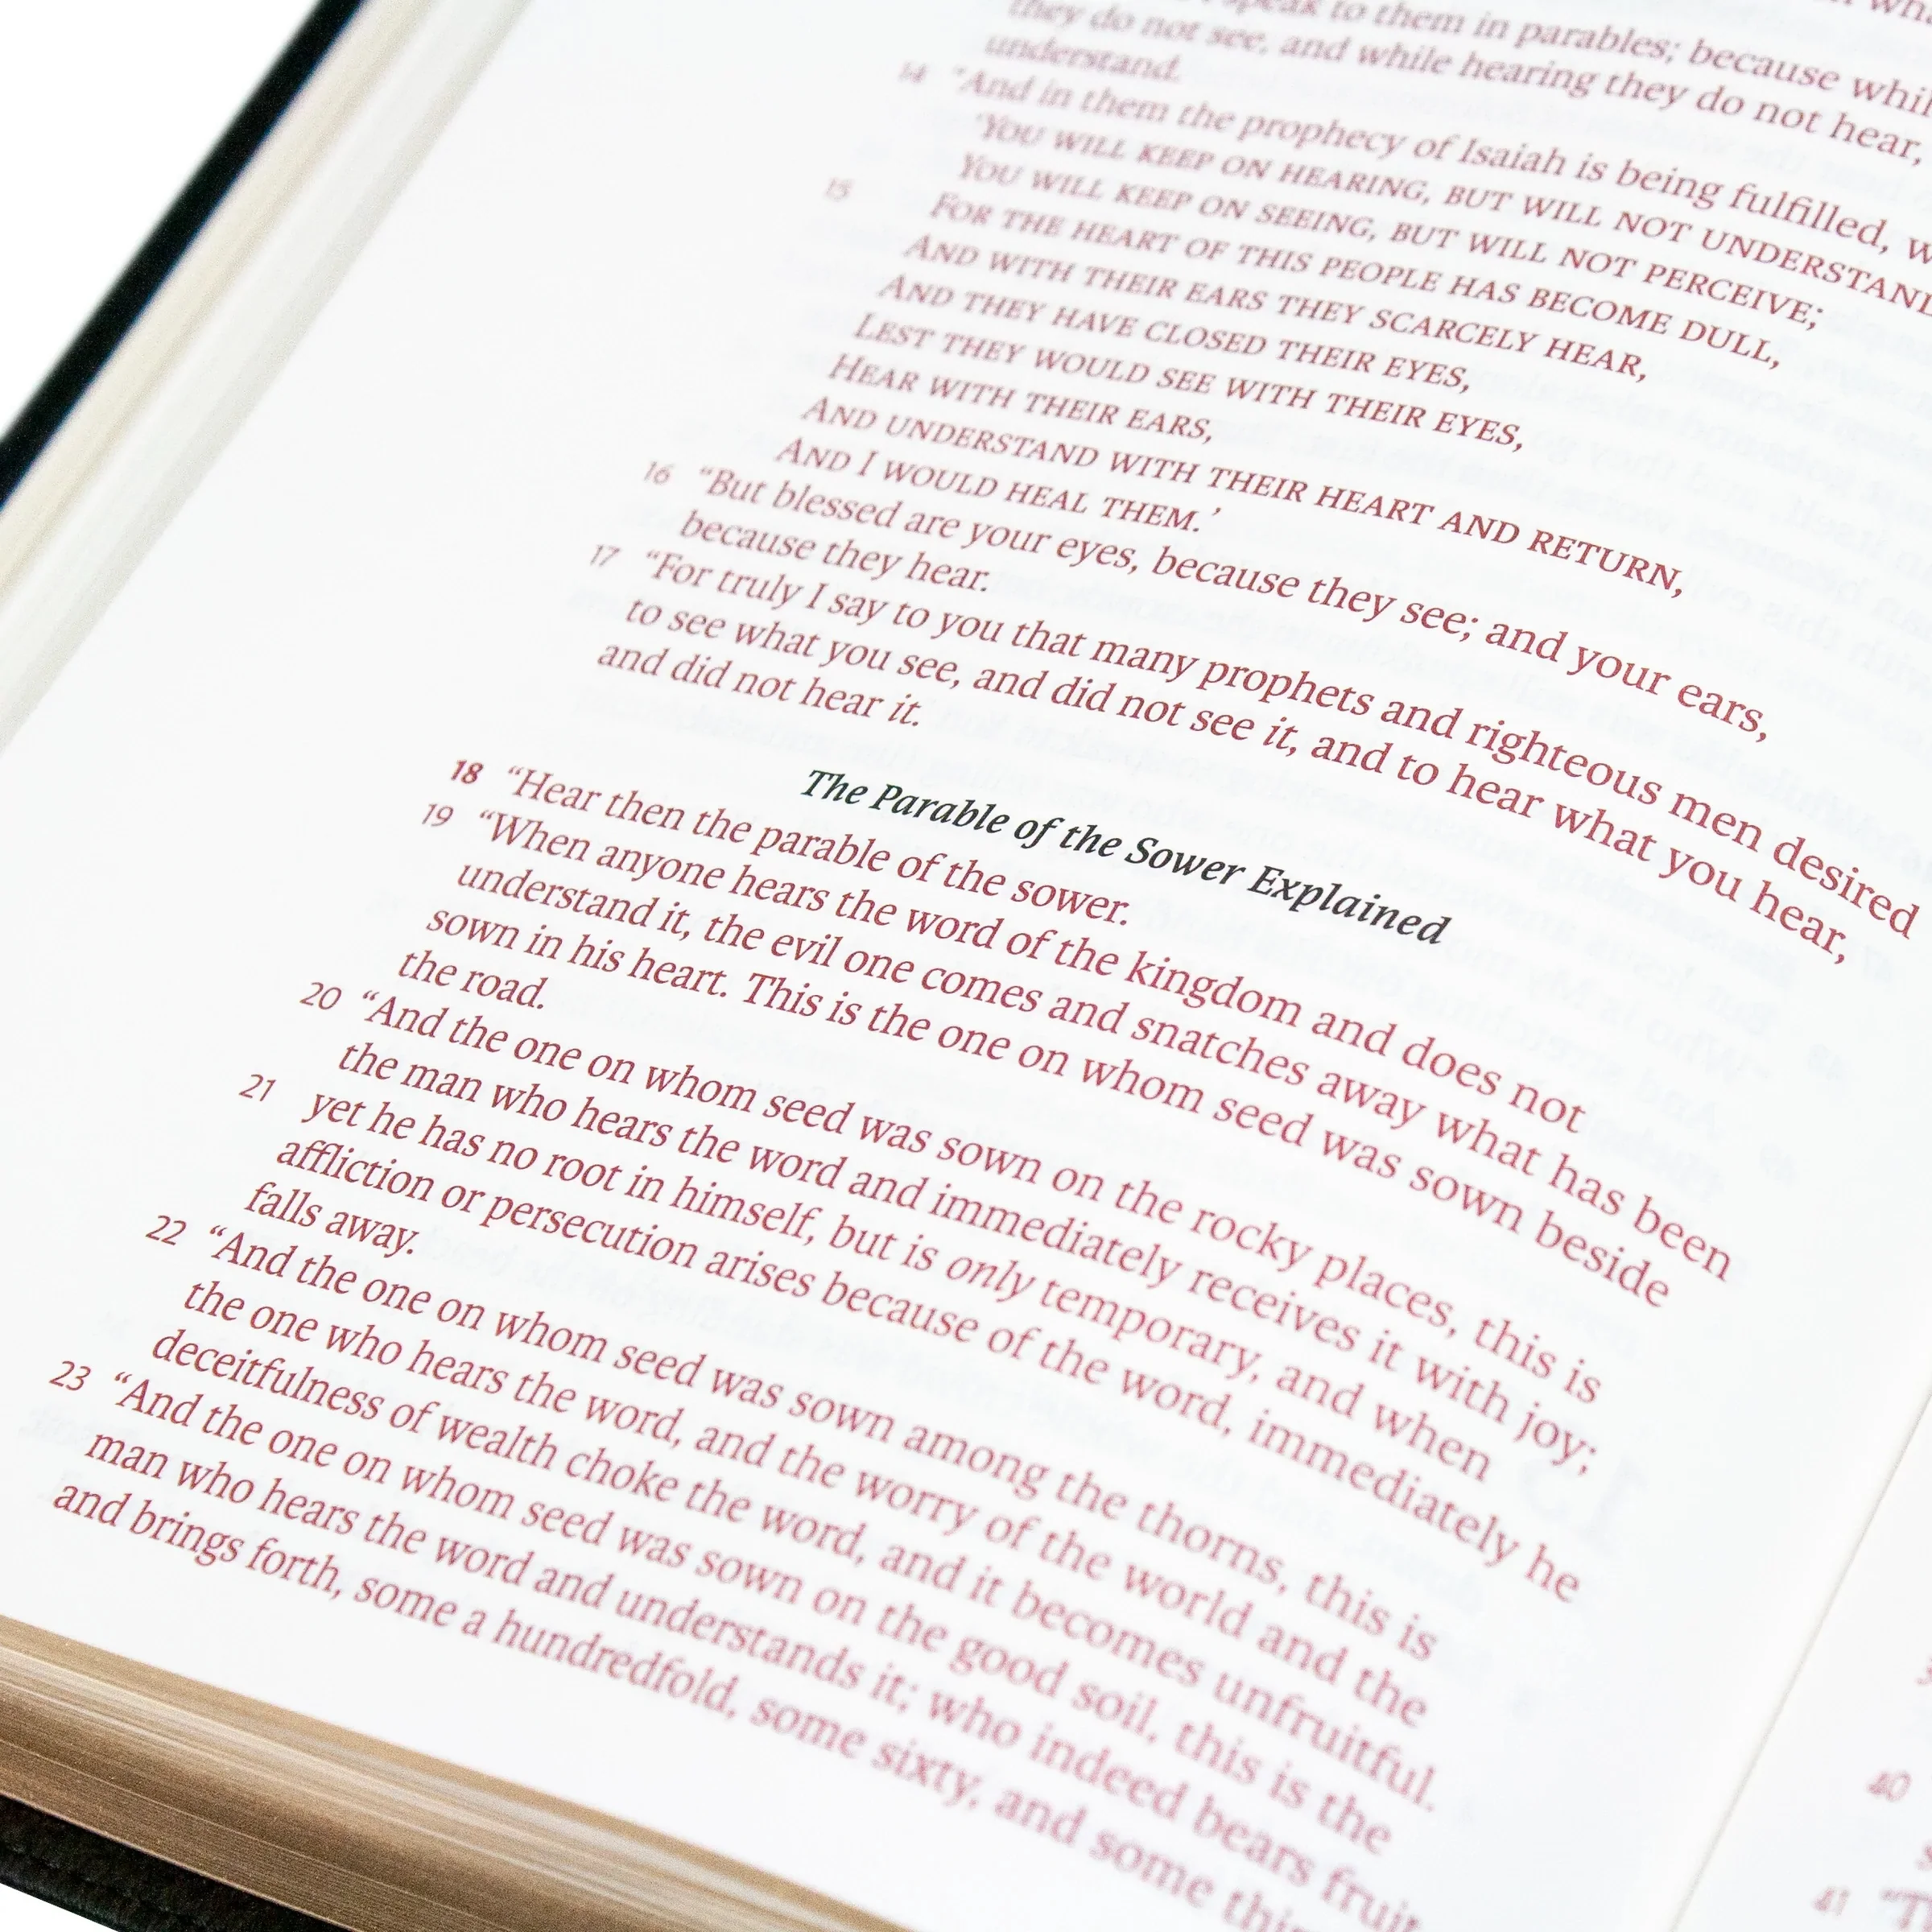 speak to them in parables; because while
they do not see, and while hearing they do not hear,
understand.
14 "And in them the prophecy of Isaiah is being fulfilled,
'YOU WILL KEEP ON HEARING, BUT WILL NOT UNDERSTAND
YOU WILL KEEP ON SEEING, BUT WILL NOT PERCEIVE;
15 FOR THE HEART OF THIS PEOPLE HAS BECOME DULL,
AND WITH THEIR EARS THEY SCARCELY HEAR,
AND THEY HAVE CLOSED THEIR EYES,
LEST THEY WOULD SEE WITH THEIR EYES,
HEAR WITH THEIR EARS,
AND UNDERSTAND WITH THEIR HEART AND RETURN,
AND I WOULD HEAL THEM.'
16 “But blessed are your eyes, because they see; and your ears,
because they hear.
17 “For truly I say to you that many prophets and righteous men desired
to see what you see, and did not see it, and to hear what you hear,
and did not hear it.
The Parable of the Sower Explained
18 “Hear then the parable of the sower.
19 “When anyone hears the word of the kingdom and does not
understand it, the evil one comes and snatches away what has been
sown in his heart. This is the one on whom seed was sown beside
the road.
20 “And the one on whom seed was sown on the rocky places, this is
the man who hears the word and immediately receives it with joy;
21 yet he has no root in himself, but is only temporary, and when
affliction or persecution arises because of the word, immediately he
falls away.
22 “And the one on whom seed was sown among the thorns, this is
the one who hears the word, and the worry of the world and the
deceitfulness of wealth choke the word, and it becomes unfruitful.
23 “And the one on whom seed was sown on the good soil, this is the
man who hears the word and understands it; who indeed bears fruit
and brings forth, some a hundredfold, some sixty, and some
40
41